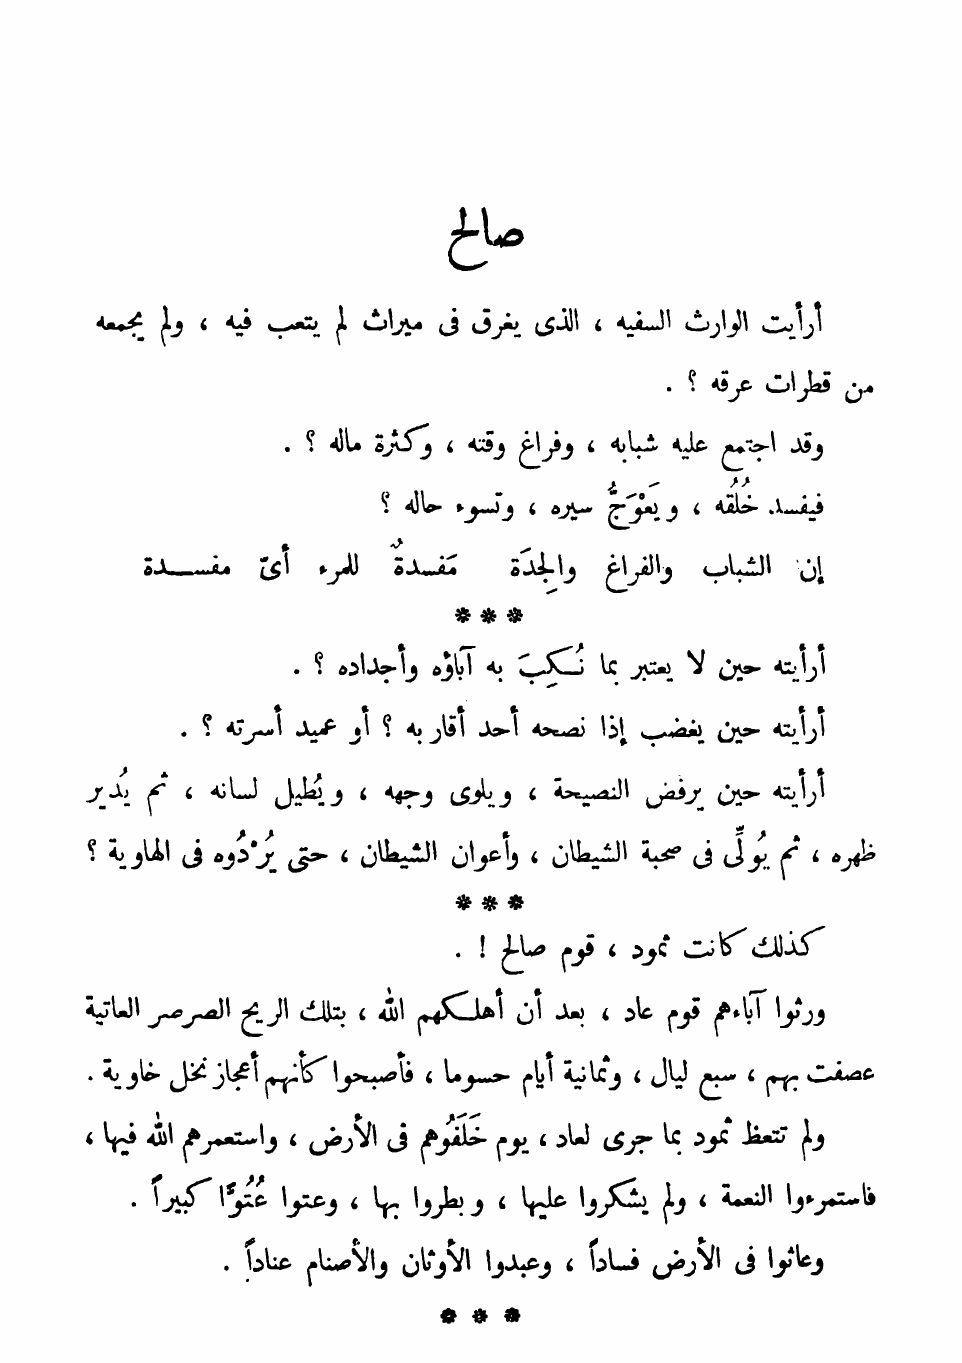 صالح
أرأيت الوارث السفيه ، الذى يغرق فى ميراث لم يتعب فيه ، ولم يجمعه
من قطرات عرقه ؟ .
وقد اجتمع عليه شبابه ، وفراغ وقته ، وكثرة ماله ؟ .
فيفسد خُلُقه ، ويَعْوَجُّ سيره ، وتسوء حاله ؟
إن الشباب والفراغ والجِدَة مَفسدةٌ للمرء أىّ مفســدة
***
أرأيته حين لا يعتبر بما نُكِبَ به آباؤه وأجداده ؟ .
أرأيته حين يغضب إذا نصحه أحد أقاربه ؟ أو عميد أسرته ؟ .
أرأيته حين يرفض النصيحة ، ويلوى وجهه ، ويُطيل لسانه ، ثم يُدير
ظهره ، ثم يُولِّى فى صحبة الشيطان ، وأعوان الشيطان ، حتى يُرْدُوه فى الهاوية ؟
***
كذلك كانت ثمود ، قوم صالح ! .
ورثوا آباءهم قوم عاد ، بعد أن أهلكهم الله ، بتلك الريح الصرصر العاتية
عصفت بهم ، سبع ليال ، وثمانية أيام حسوما ، فأصبحوا كأنهم أعجاز نخل خاوية .
ولم تتعظ ثمود بما جرى لعاد ، يوم خَلَفُوهم فى الأرض ، واستعمرهم الله فيها ،
فاستمرءوا النعمة ، ولم يشكروا عليها ، وبطروا بها ، وعتوا عُتُوًّا كبيراً .
وعاثوا فى الأرض فساداً ، وعبدوا الأوثان والأصنام عناداً .
***